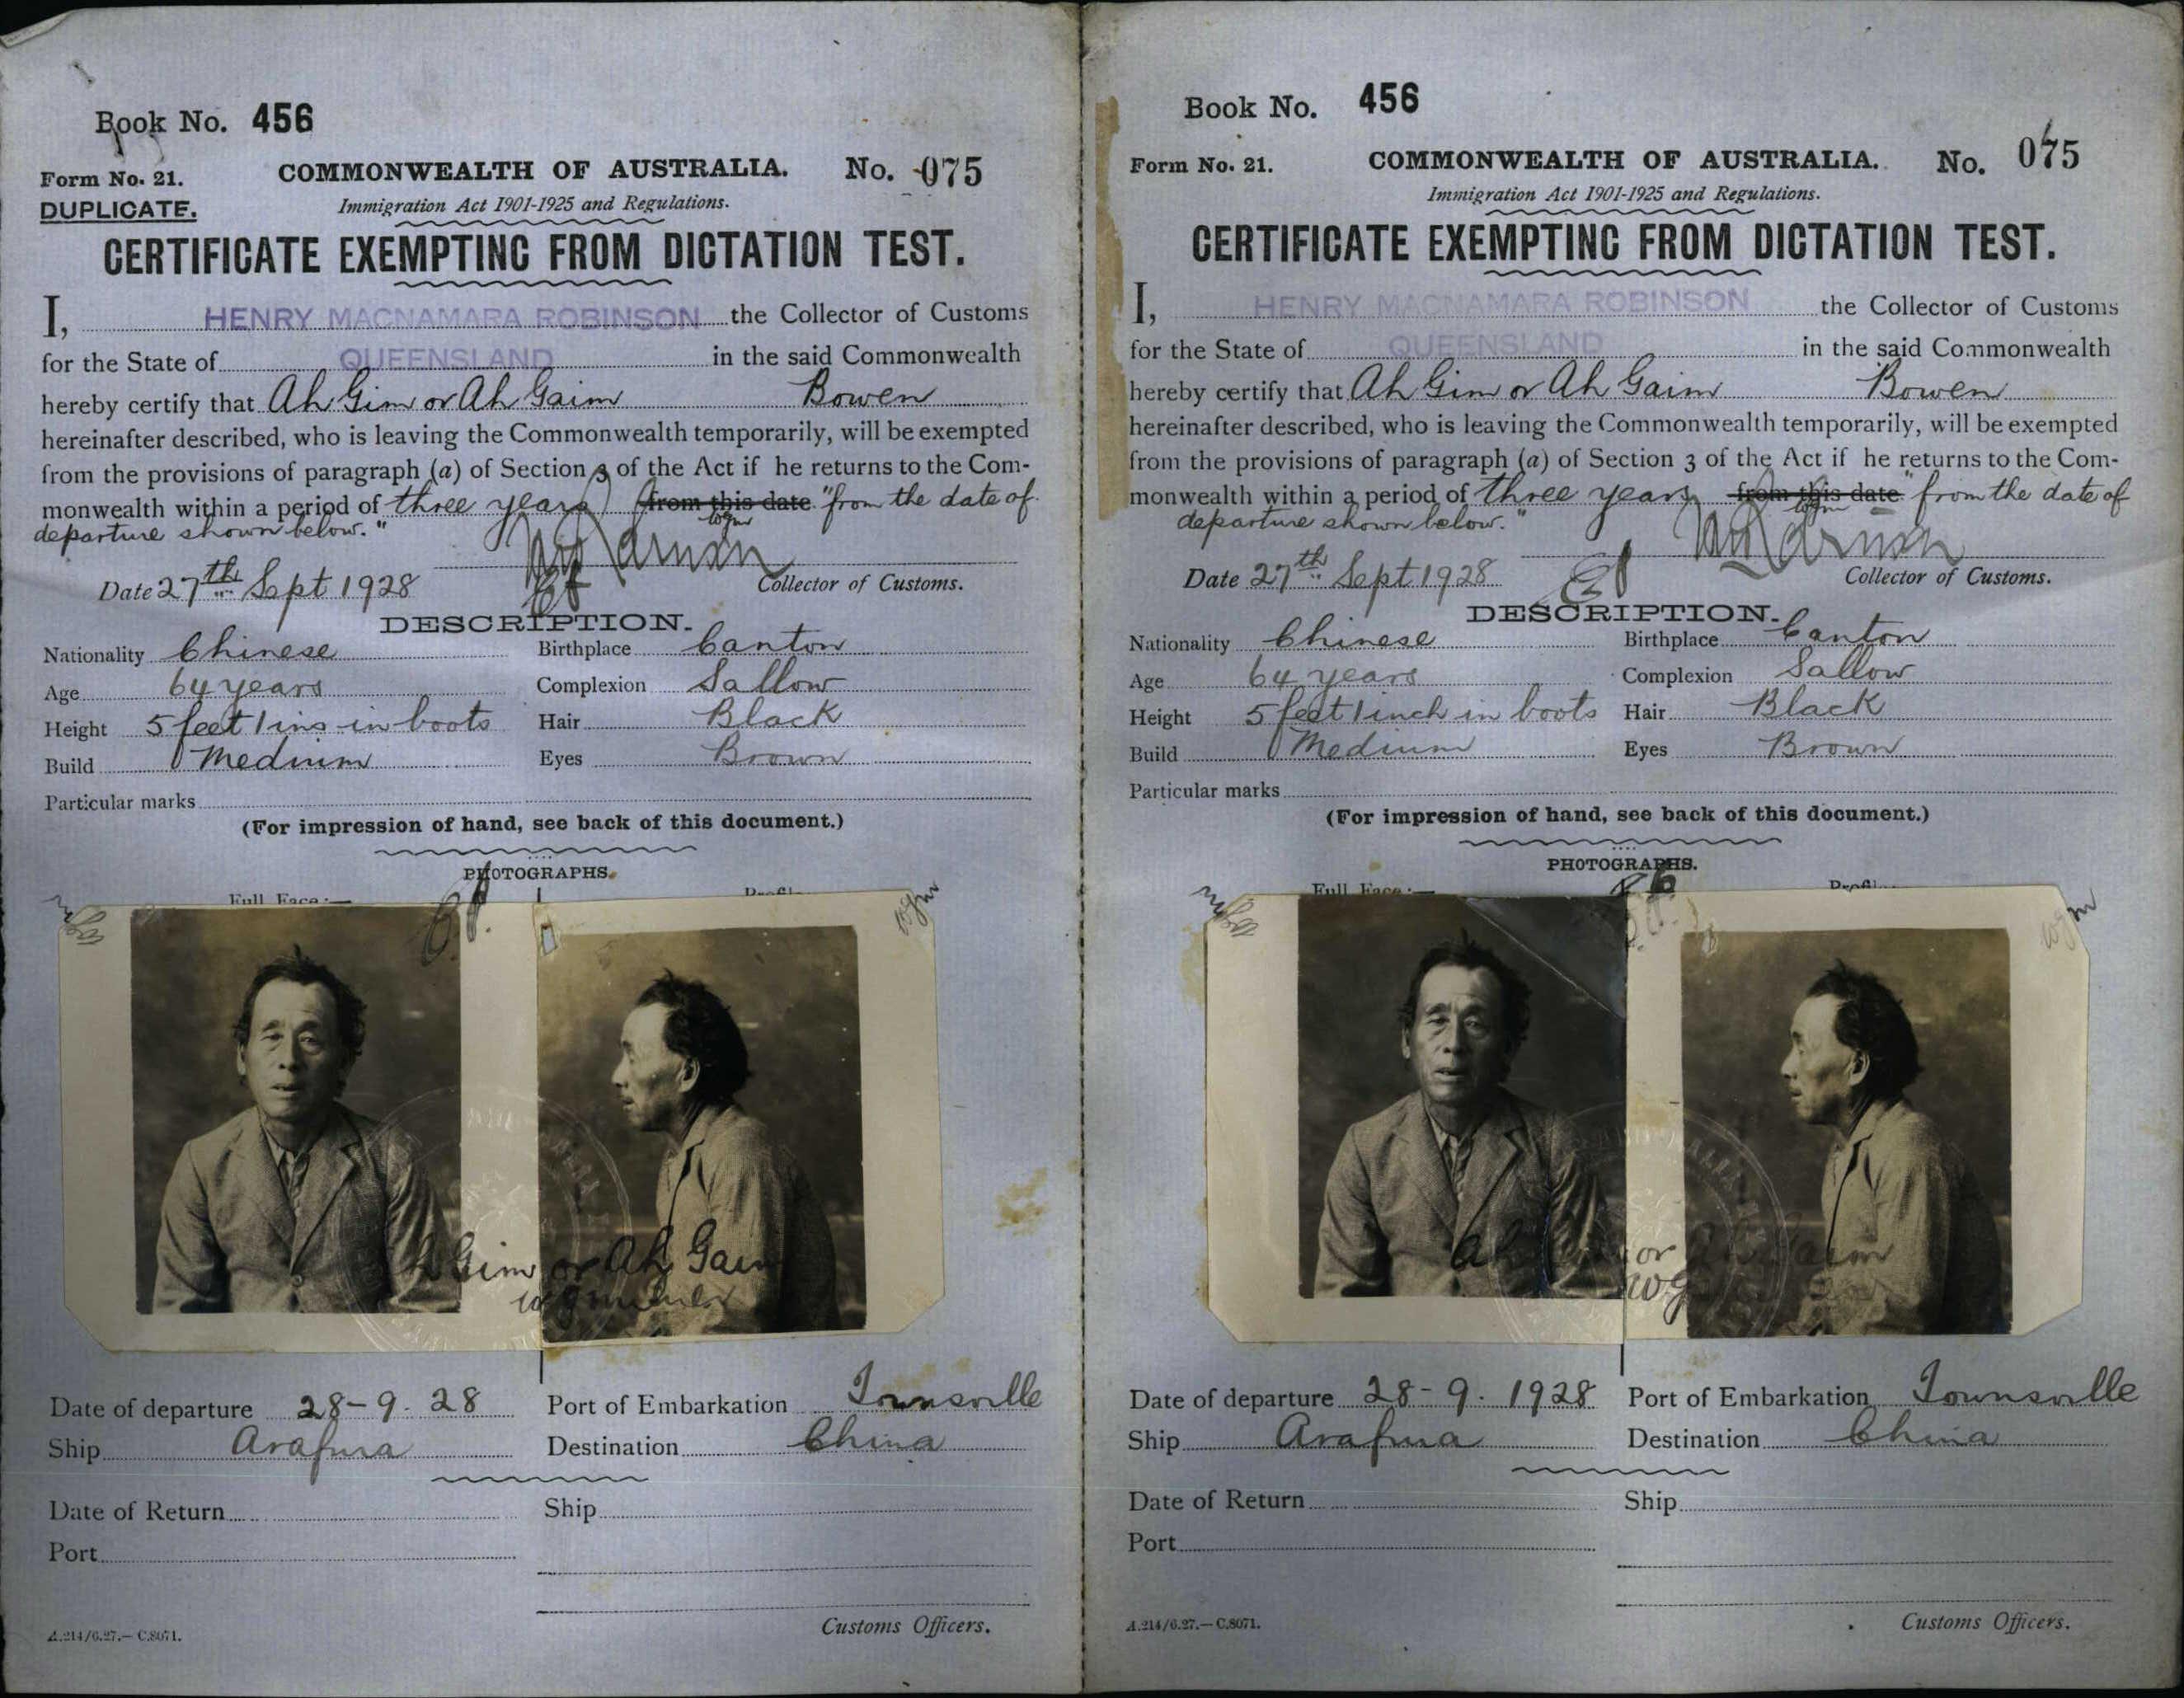 Book No. 456
Form No. 21.
COMMONWEALTH OF AUSTRALIA.
No. 075
DUPLICATE.
Immigration Act 1901-1925 and Regulations.
CERTIFICATE EXEMPTING FROM DICTATION TEST.
I, HENRY MACNAMARA ROBINSON the Collector of Customs
for the State of QUEENSLAND in the said Commonwealth
hereby certify that Ah Gim or Ah Gaim Bowen
hereinafter described, who is leaving the Commonwealth temporarily, will be exempted
from the provisions of paragraph (a) of Section 3 of the Act if he returns to the Com-
monwealth within a period of three years from this date "from the date of
departure shown below."
wgm
Date 27th Sept 1928
Collector of Customs.
DESCRIPTION.
Nationality Chinese Birthplace Canton
Age 64 years Complexion Sallow
Height 5 feet 1 ins in boots Hair Black
Build Medium Eyes Brown
Particular marks
(For impression of hand, see back of this document.)
PHOTOGRAPHS.
Full Face:—
wgm
wgm
h Gim or Ah Gaim
Date of departure 28-9-28 Port of Embarkation Townsville
Ship Arafura Destination China
Date of Return Ship
Port
Customs Officers.
A.214/6.27.— C.8071.
Book No. 456
Form No. 21.
COMMONWEALTH OF AUSTRALIA.
No. 075
Immigration Act 1901-1925 and Regulations.
CERTIFICATE EXEMPTING FROM DICTATION TEST.
I, HENRY MACNAMARA ROBINSON the Collector of Customs
for the State of QUEENSLAND in the said Commonwealth
hereby certify that Ah Gim or Ah Gaim Bowen
hereinafter described, who is leaving the Commonwealth temporarily, will be exempted
from the provisions of paragraph (a) of Section 3 of the Act if he returns to the Com-
monwealth within a period of three years from this date "from the date of
departure shown below."
wgm
Date 27th Sept 1928
Collector of Customs.
DESCRIPTION.
Nationality Chinese Birthplace Canton
Age 64 years Complexion Sallow
Height 5 feet 1 inch in boots Hair Black
Build Medium Eyes Brown
Particular marks
(For impression of hand, see back of this document.)
PHOTOGRAPHS.
Full Face:—
wgm
wgm
Ah or Ah Gaim
Date of departure 28-9-1928 Port of Embarkation Townsville
Ship Arafura Destination China
Date of Return Ship
Port
Customs Officers.
A.214/6.27.— C.8071.